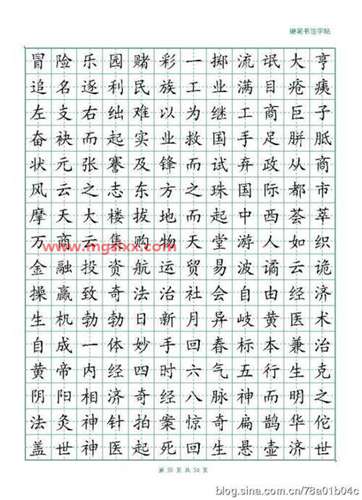 硬笔书法字帖
冒险乐园赌彩一掷流氓大亨
追名逐利民族工业满目疮痍
左支右绌难以为继工商巨子
奋袂而起实业救国手足胼胝
状元张謇及锋而试弃政从商
风云之志东方之珠国际都市
摩天大楼拔地而起中西荟萃
万商云集购物天堂游人如织
金融投资航运贸易波谲云诡
操赢致奇法治社会自由经济
生机勃勃日新月异岐黄医术
自成一体妙手回春标本兼治
黄帝内经四时六气五行生克
阴阳相济奇经八脉神而明之
法灸神针拍案惊奇扁鹊华佗
盖世神医起死回生悬壶济世
www.mgsfxx.com
blog.sina.com.cn/78a01b04c